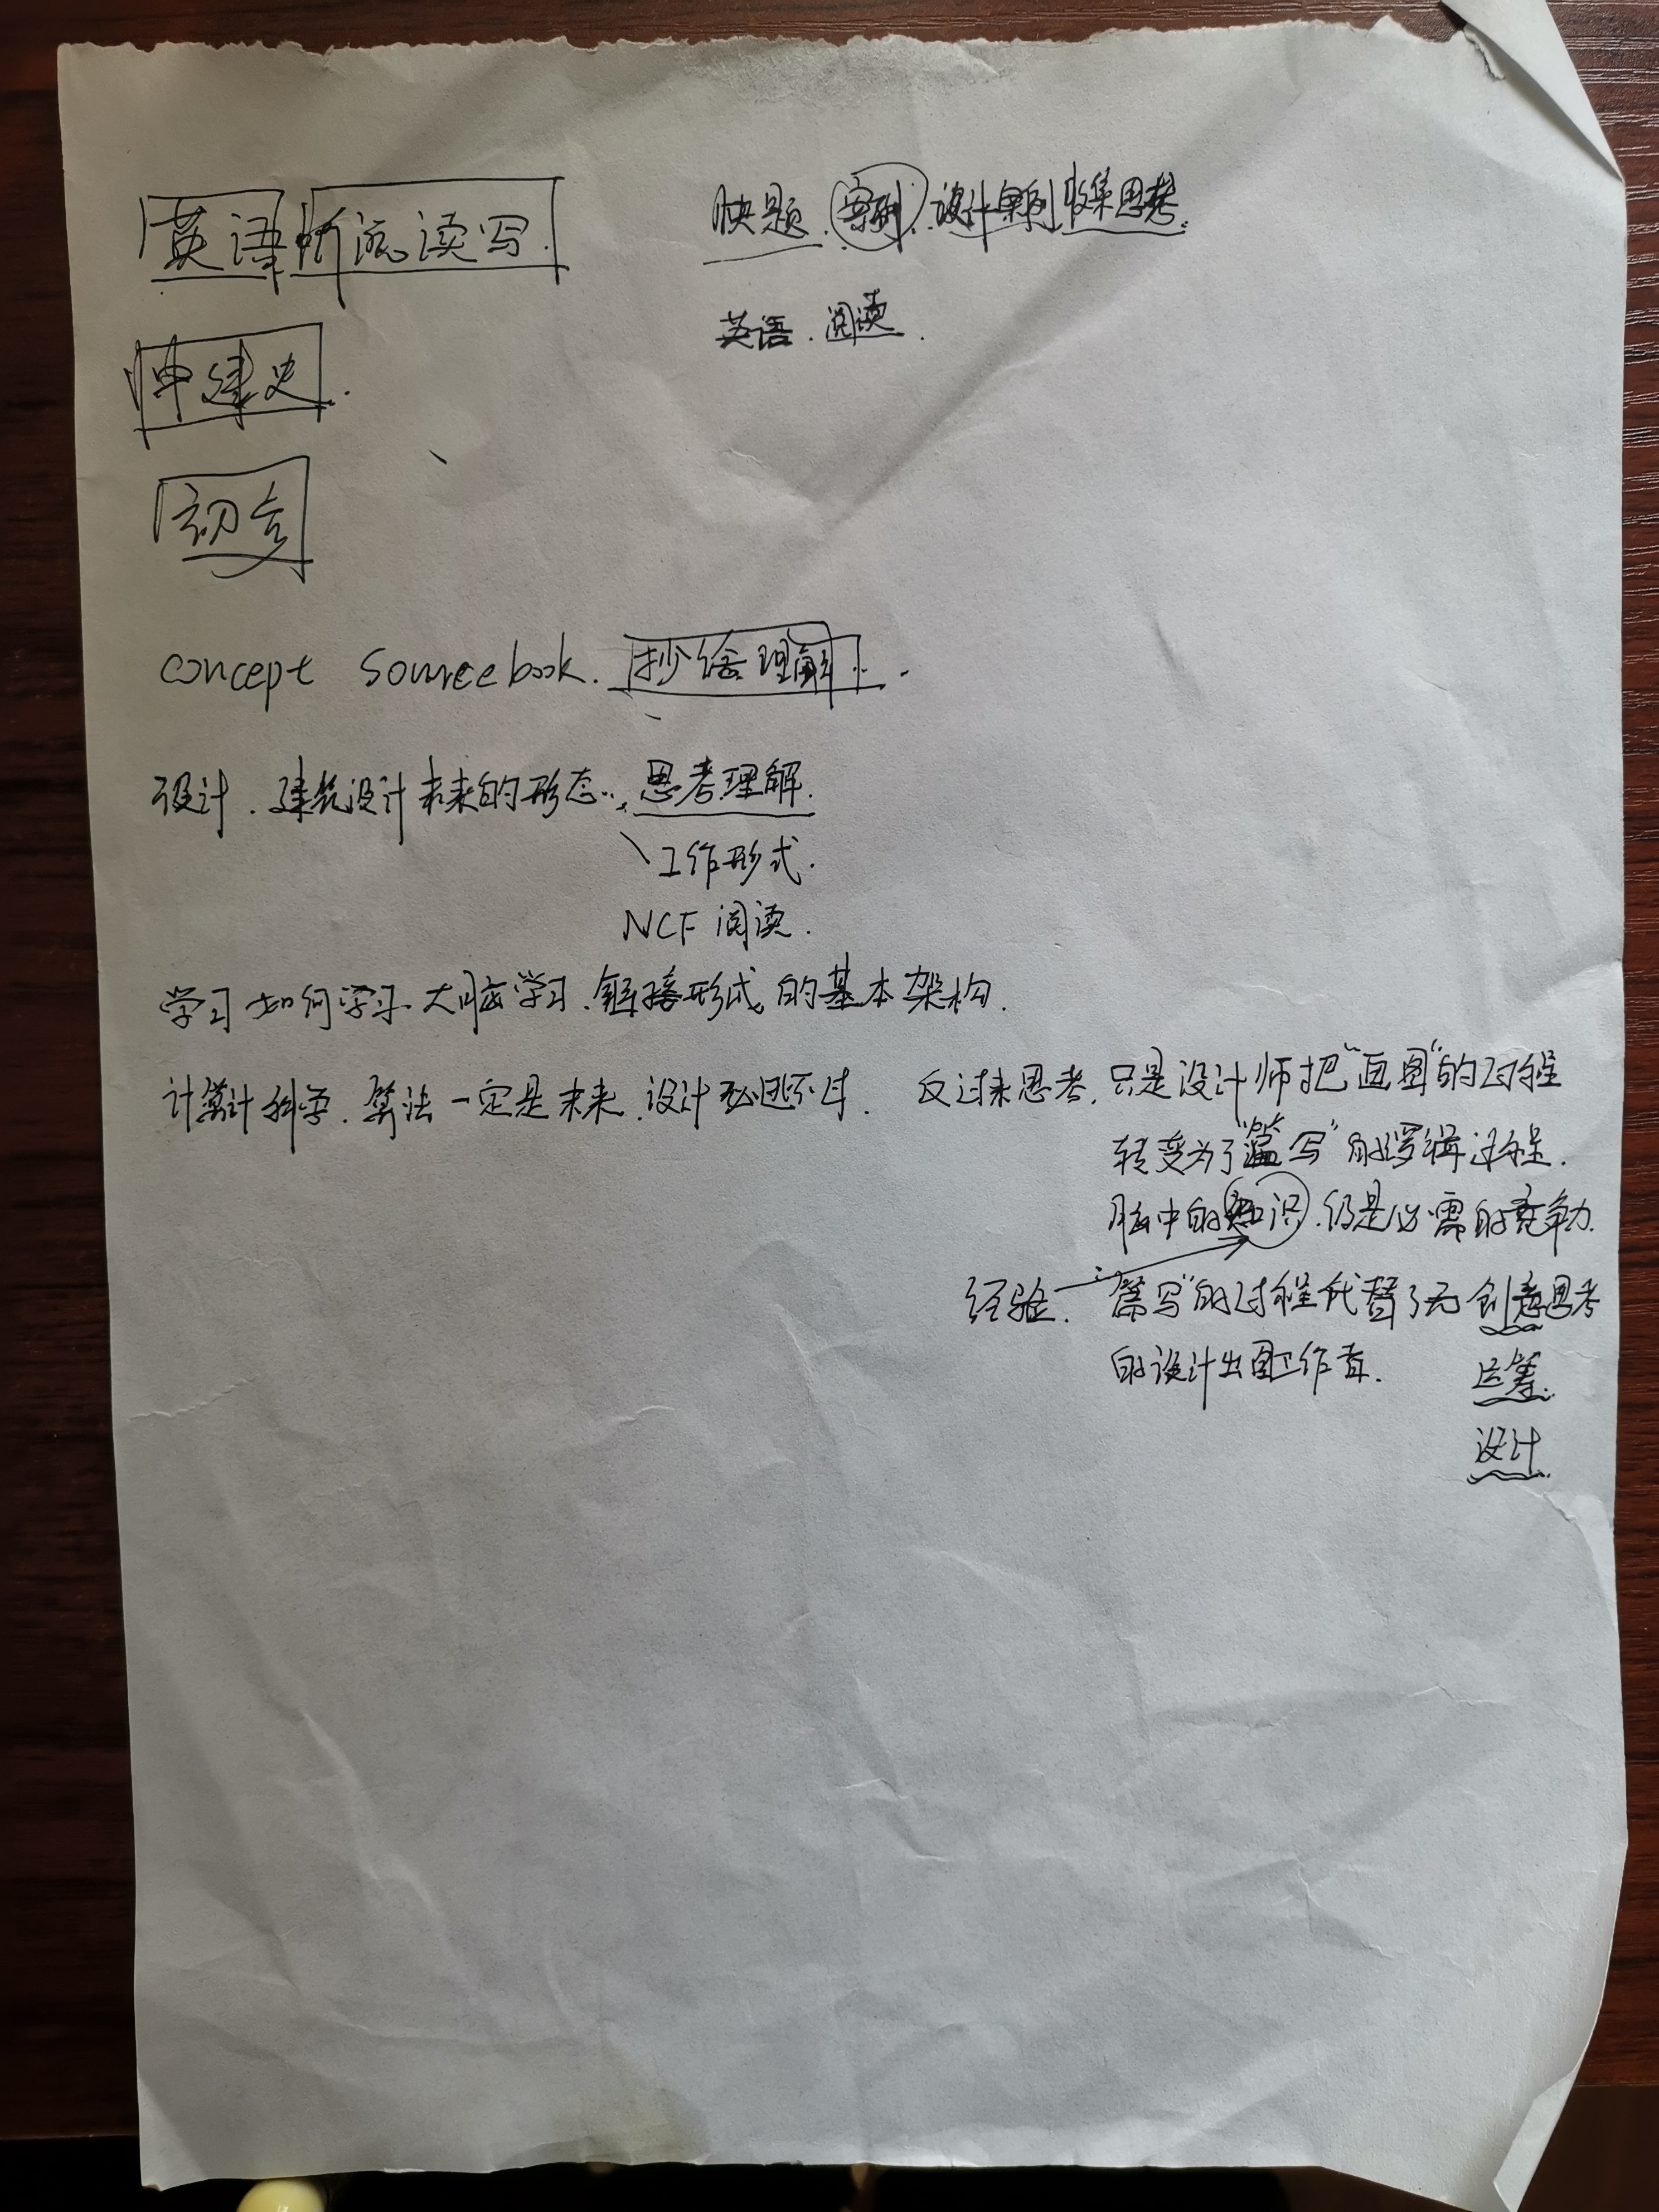 英语 听说读写.
快题. 案例. 设计案例收集思考.
英语. 阅读.
中建史.
concept sourcebook. 抄绘理解.
设计. 建筑设计未来的形态... 思考理解.
工作形式.
NCF 阅读.
学习如何学习. 大脑学习. 链接形成的基本架构.
计算计科学. 算法一定是未来. 设计必逃不过. 反过来思考. 只是设计师把"画图"的过程
转变为了"篇写"的逻辑过程.
脑中的知识. 仍是必需的竞争力.
经验. "篇写"的过程代替了无创意思考
的设计出图工作者.
运筹.
设计